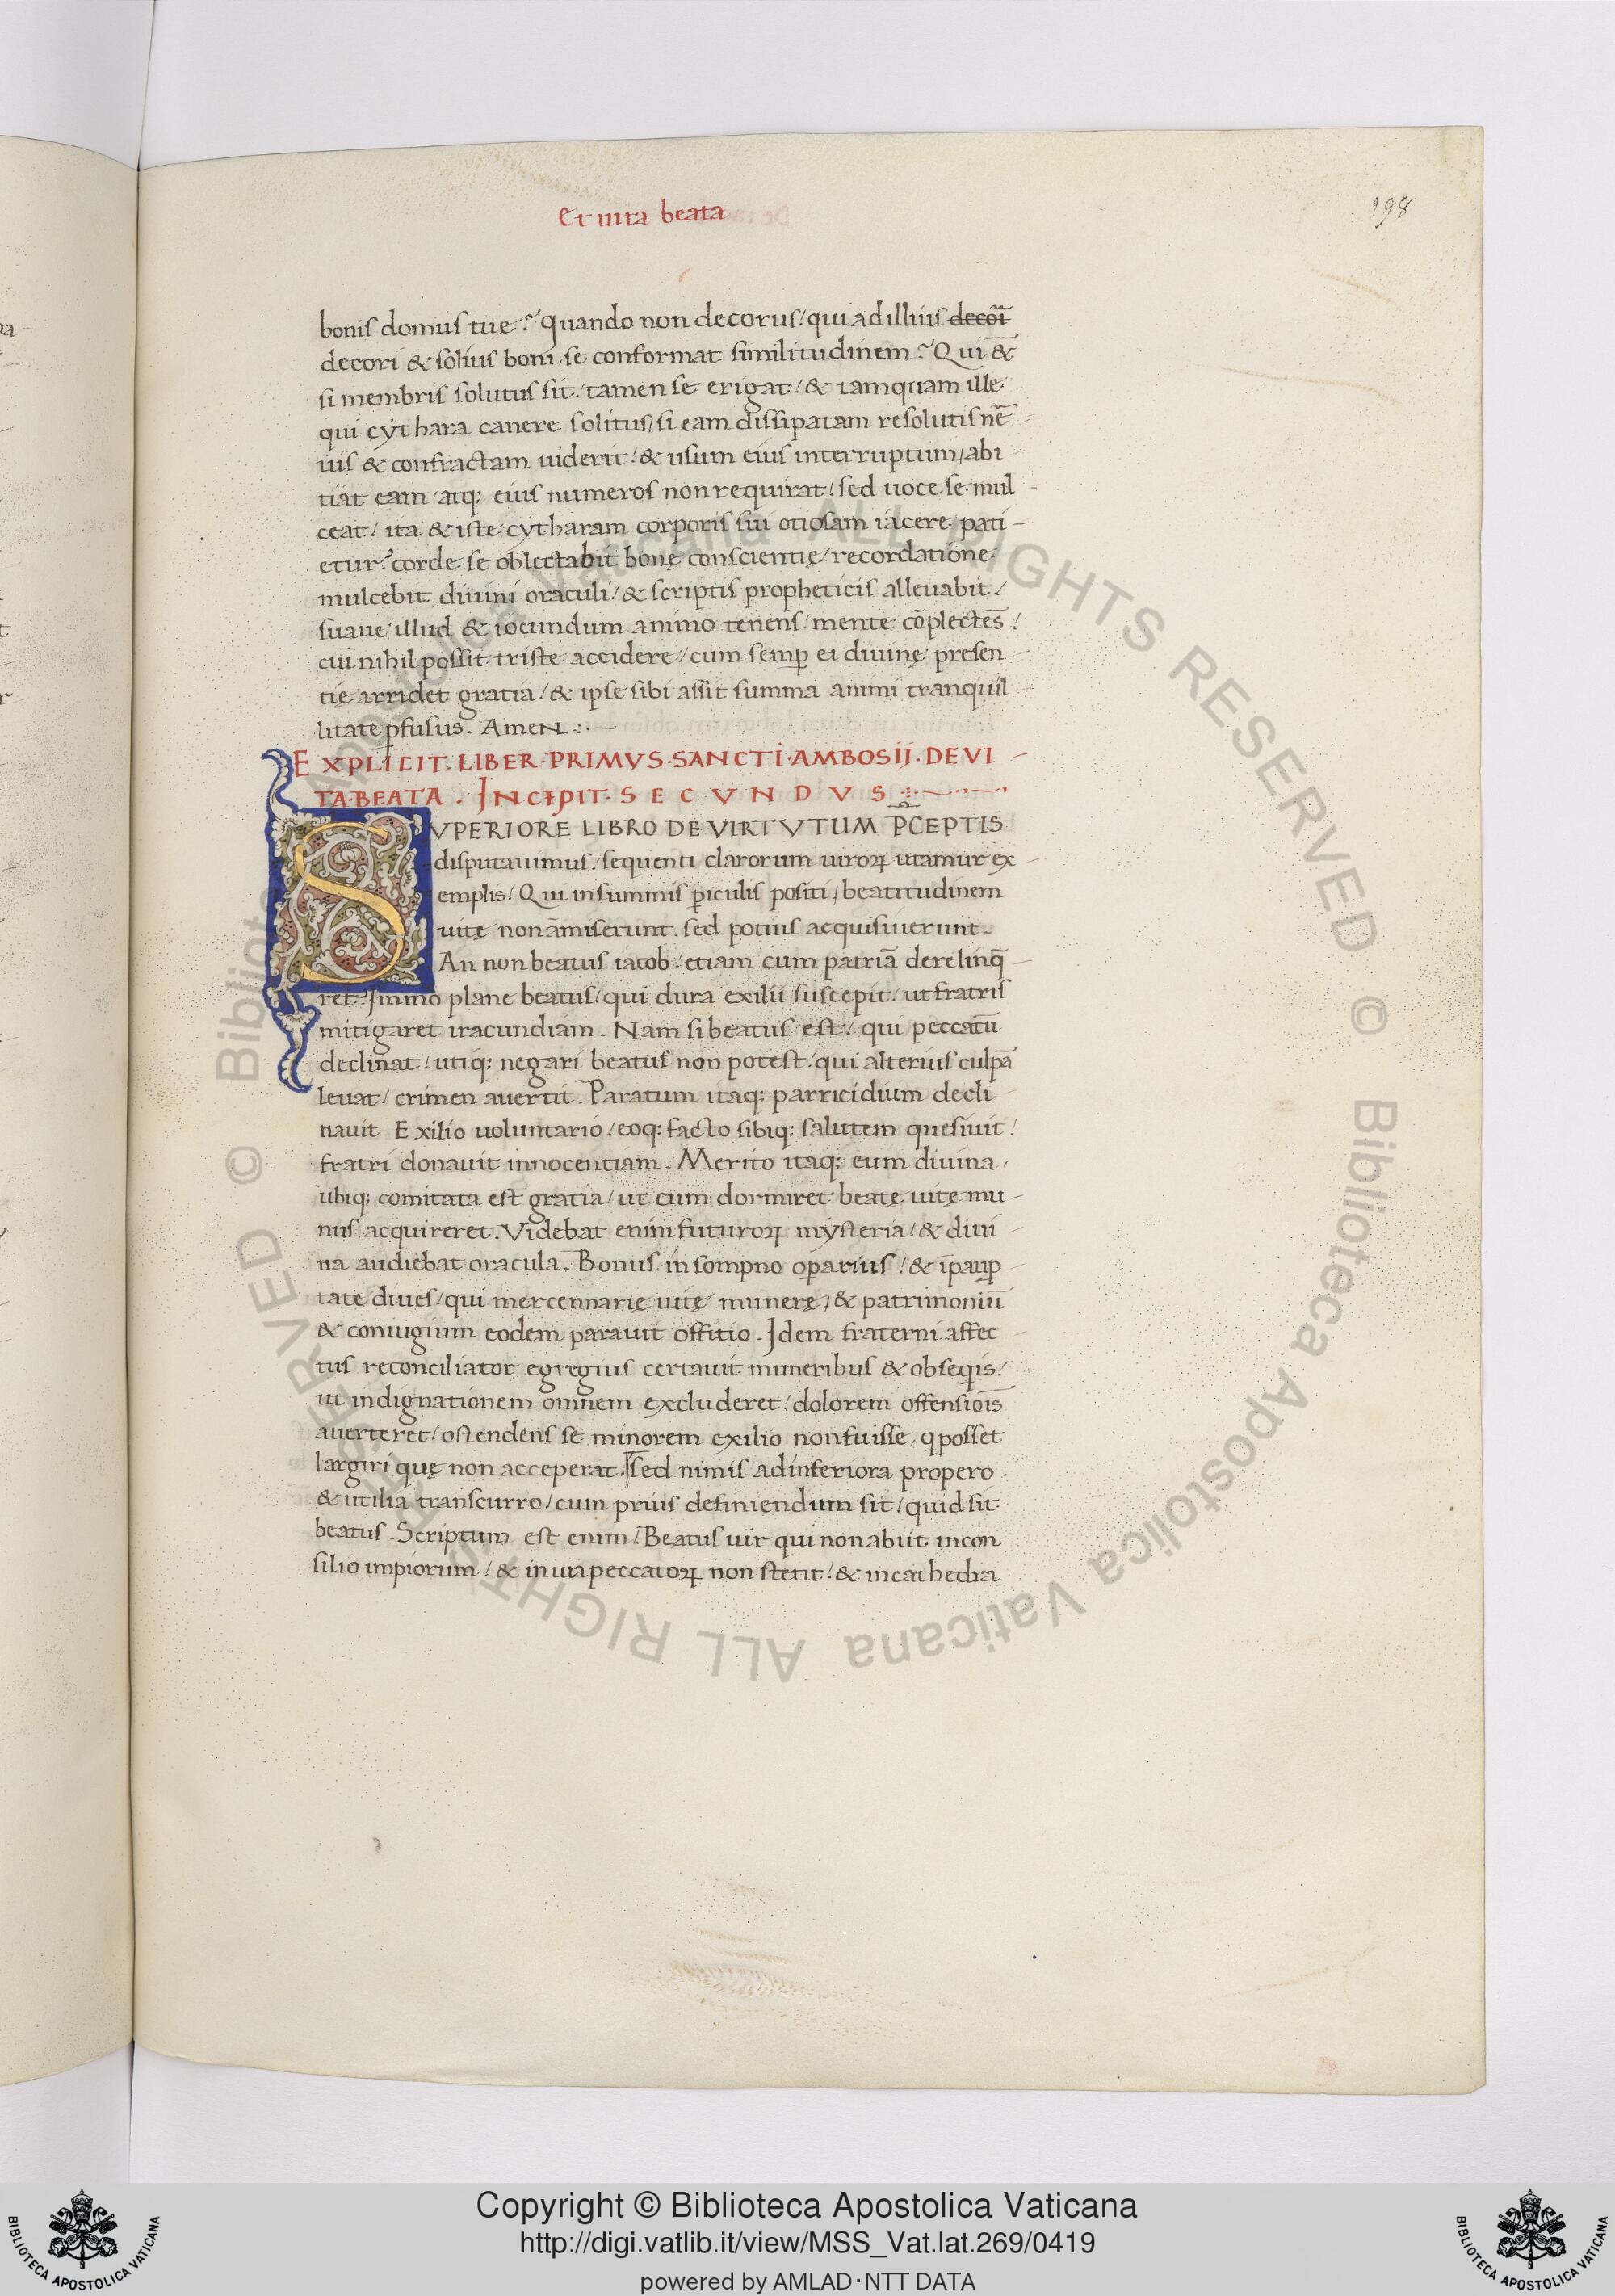 Et uita beata
198
bonis domus tuę? Quando non decorus/ qui ad illius decoī
decori & solius boni/ se conformat similitudinem? Qui &
si membris solutus sit/ tamen se erigat/ & tamquam ille
qui cythara canere solitus/ si eam dissipatam resolutis nē
uis & confractam uiderit/ & usum eius interruptum/ abi
tiat eam/ atq; eius numeros non requirat/ sed uoce se mul
ceat/ ita & iste cytharam corporis sui otiosam iacere pati
etur? corde se oblectabit bonę conscientię/ recordatione
mulcebit diuini oraculi/ & scriptis propheticis alleuabit/
suaue illud & iocundum animo tenens/ mente cōplectēs/
cui nihil possit triste accidere/ cum semꝑ ei diuinę presen
tię arridet gratia/ & ipse sibi assit summa animi tranquil
litate ꝑfusus. AmeN .:.—
EXPLICIT. LIBER·PRIMVS·SANCTI·AMBOSIJ. DE VI
TA·BEATA . INCIPIT· S E C V N D V S
SVPERIORE LIBRO DE VIRTVTUM P̄CEPTIS
disputauimus/ sequenti clarorum uiroꝝ utamur ex
emplis/ Qui in summis ꝑiculis positi/ beatitudinem
uitę non āmiserunt. sed potius acquisiuerunt.
An non beatus iacob/ etiam cum patriā derelinq̄
ret? Immo plane beatus/ qui dura exilii suscepit/ ut fratris
mitigaret iracundiam. Nam si beatus est/ qui peccatū
declinat/ utiq; negari beatus non potest/ qui alterius culpā
leuat/ crimen auertit. Paratum itaq; parricidium decli
nauit Exilio uoluntario/ eoq; facto sibiq; salutem quesiuit/
fratri donauit innocentiam. Merito itaq; eum diuina/
ubiq; comitata est gratia/ ut cum dormiret beatę uitę mu
nus acquireret. Videbat enim futuroꝝ mysteria/ & diui
na audiebat oracula. Bonus in sompno oꝑarius/ & ī pauꝑ
tate diues/ qui mercennarię uitę munerę/ & patrimoniū
& coniugium eodem parauit offitio. Idem fraterni affec
tus reconciliator egregius certauit muneribus & obseq̇is/
ut indignationem omnem excluderet/ dolorem offensiōis
auerteret/ ostendens se minorem exilio non fuisse/ q̇ posset
largiri quę non acceperat. Sed nimis ad inferiora propero
& utilia transcurro/ cum prius definiendum sit/ quid sit
beatus. Scriptum est enim/ Beatus uir qui non abiit in con
silio impiorum/ & in uia peccatoꝝ non stetit/ & in cathedra
© Biblioteca Apostolica Vaticana ALL RIGHTS RESERVED © Biblioteca Apostolica Vaticana ALL RIGHTS RESERVED
BIBLIOTECA APOSTOLICA VATICANA
Copyright © Biblioteca Apostolica Vaticana
http://digi.vatlib.it/view/MSS_Vat.lat.269/0419
powered by AMLAD·NTT DATA
BIBLIOTECA APOSTOLICA VATICANA